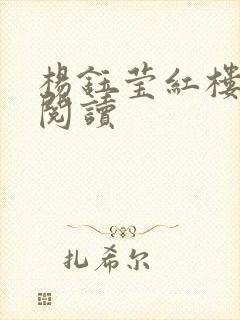 楊鈺莹紅樓
閱讀
扎希尔